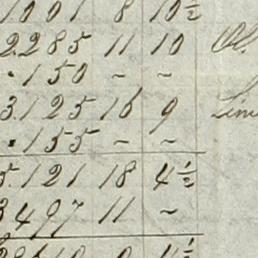 1001 8 10½
2285 11 10
.150 ~ ~
3125 16 9
.155 ~ ~
5.121 18 4½
3497 11 ~